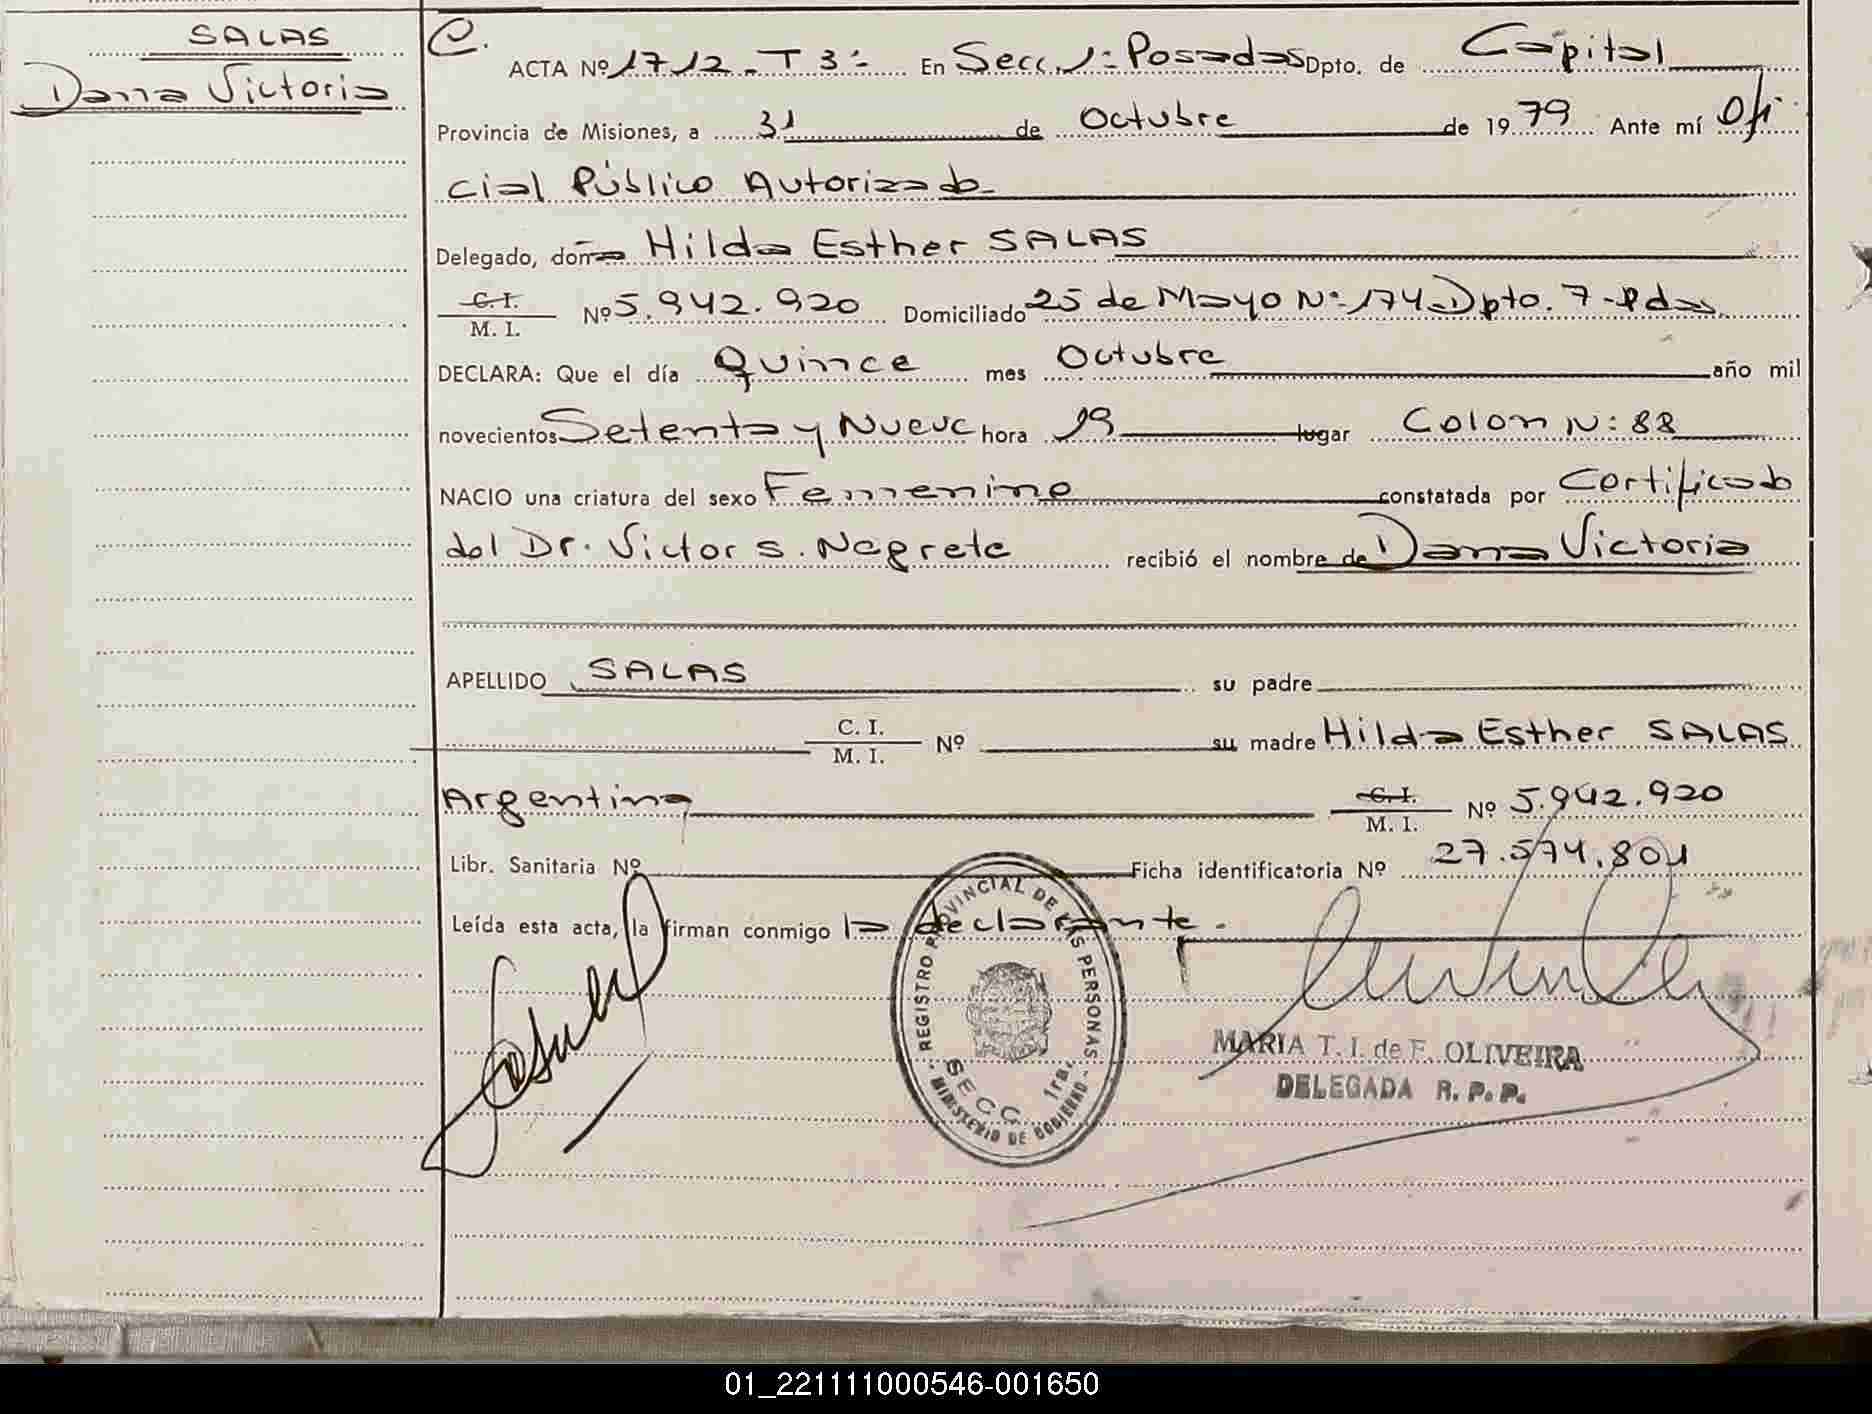 SALAS
Dana Victoria
C.
ACTA Nº 1712 - T 3º - En Secc. 1º Posadas Dpto. de Capital
Provincia de Misiones, a 31 de Octubre de 1979 Ante mí Ofi
cial Público Autorizado
Delegado, doña Hilda Esther SALAS
C. I.
M. I. Nº 5.942.920 Domiciliado 25 de Mayo Nº 174 - Dpto. 7 - Pdas.
DECLARA: Que el día Quince mes Octubre año mil
novecientos Setenta y Nueve hora 19 lugar Colon Nº 88
NACIO una criatura del sexo Femenino constatada por Certificado
del Dr. Victor S. Negrete recibió el nombre de Dana Victoria
APELLIDO SALAS su padre
C. I.
M. I. Nº su madre Hilda Esther SALAS
Argentina C. I.
M. I. Nº 5.942.920
Libr. Sanitaria Nº Ficha identificatoria Nº 27.574.801
Leída esta acta, la firman conmigo la declarante.
REGISTRO PROVINCIAL DE LAS PERSONAS
SECC. 1ra.
- MINISTERIO DE GOBIERNO -
MARIA T. I. de F. OLIVEIRA
DELEGADA R. P. P.
01_221111000546-001650